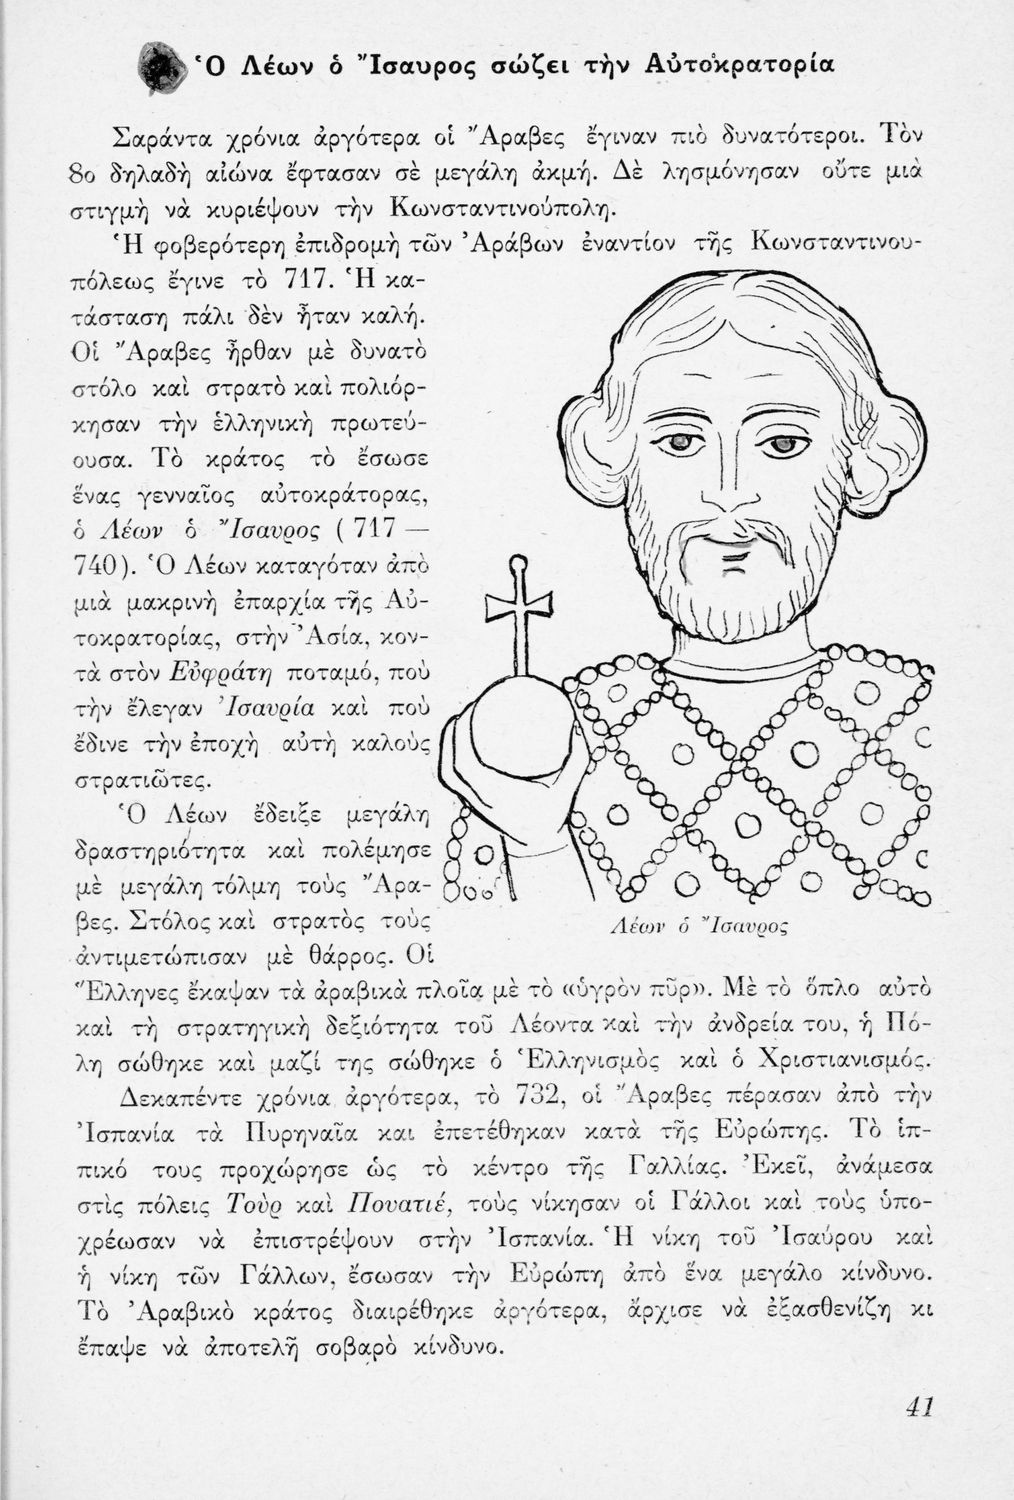 Ὁ Λέων ὁ Ἴσαυρος σώζει τὴν Αὐτοκρατορία
Σαράντα χρόνια ἀργότερα οἱ Ἄραβες ἔγιναν πιὸ δυνατότεροι. Τὸν
8ο δηλαδὴ αἰώνα ἔφτασαν σὲ μεγάλη ἀκμή. Δὲ λησμόνησαν οὔτε μιὰ
στιγμὴ νὰ κυριέψουν τὴν Κωνσταντινούπολη.
Ἡ φοβερότερη ἐπιδρομὴ τῶν Ἀράβων ἐναντίον τῆς Κωνσταντινου-
πόλεως ἔγινε τὸ 717. Ἡ κα-
τάσταση πάλι δὲν ἦταν καλή.
Οἱ Ἄραβες ἦρθαν μὲ δυνατὸ
στόλο καὶ στρατὸ καὶ πολιόρ-
κησαν τὴν ἑλληνικὴ πρωτεύ-
ουσα. Τὸ κράτος τὸ ἔσωσε
ἕνας γενναῖος αὐτοκράτορας,
ὁ Λέων ὁ Ἴσαυρος (717 —
740). Ὁ Λέων καταγόταν ἀπὸ
μιὰ μακρινὴ ἐπαρχία τῆς Αὐ-
τοκρατορίας, στὴν Ἀσία, κον-
τὰ στὸν Εὐφράτη ποταμό, ποὺ
τὴν ἔλεγαν Ἰσαυρία καὶ ποὺ
ἔδινε τὴν ἐποχὴ αὐτὴ καλοὺς
στρατιῶτες.
Ὁ Λέων ἔδειξε μεγάλη
δραστηριότητα καὶ πολέμησε
μὲ μεγάλη τόλμη τοὺς Ἄρα-
βες. Στόλος καὶ στρατὸς τοὺς
ἀντιμετώπισαν μὲ θάρρος. Οἱ
Λέων ὁ Ἴσαυρος
Ἕλληνες ἔκαψαν τὰ ἀραβικὰ πλοῖα μὲ τὸ «ὑγρὸν πῦρ». Μὲ τὸ ὅπλο αὐτὸ
καὶ τὴ στρατηγικὴ δεξιότητα τοῦ Λέοντα καὶ τὴν ἀνδρεία του, ἡ Πό-
λη σώθηκε καὶ μαζί της σώθηκε ὁ Ἑλληνισμὸς καὶ ὁ Χριστιανισμός.
Δεκαπέντε χρόνια ἀργότερα, τὸ 732, οἱ Ἄραβες πέρασαν ἀπὸ τὴν
Ἰσπανία τὰ Πυρηναῖα και ἐπετέθηκαν κατὰ τῆς Εὐρώπης. Τὸ ἱπ-
πικό τους προχώρησε ὡς τὸ κέντρο τῆς Γαλλίας. Ἐκεῖ, ἀνάμεσα
στὶς πόλεις Τοὺρ καὶ Πουατιέ, τοὺς νίκησαν οἱ Γάλλοι καὶ τοὺς ὑπο-
χρέωσαν νὰ ἐπιστρέψουν στὴν Ἰσπανία. Ἡ νίκη τοῦ Ἰσαύρου καὶ
ἡ νίκη τῶν Γάλλων, ἔσωσαν τὴν Εὐρώπη ἀπὸ ἕνα μεγάλο κίνδυνο.
Τὸ Ἀραβικὸ κράτος διαιρέθηκε ἀργότερα, ἄρχισε νὰ ἐξασθενίζη κι
ἔπαψε νὰ ἀποτελῆ σοβαρὸ κίνδυνο.
41